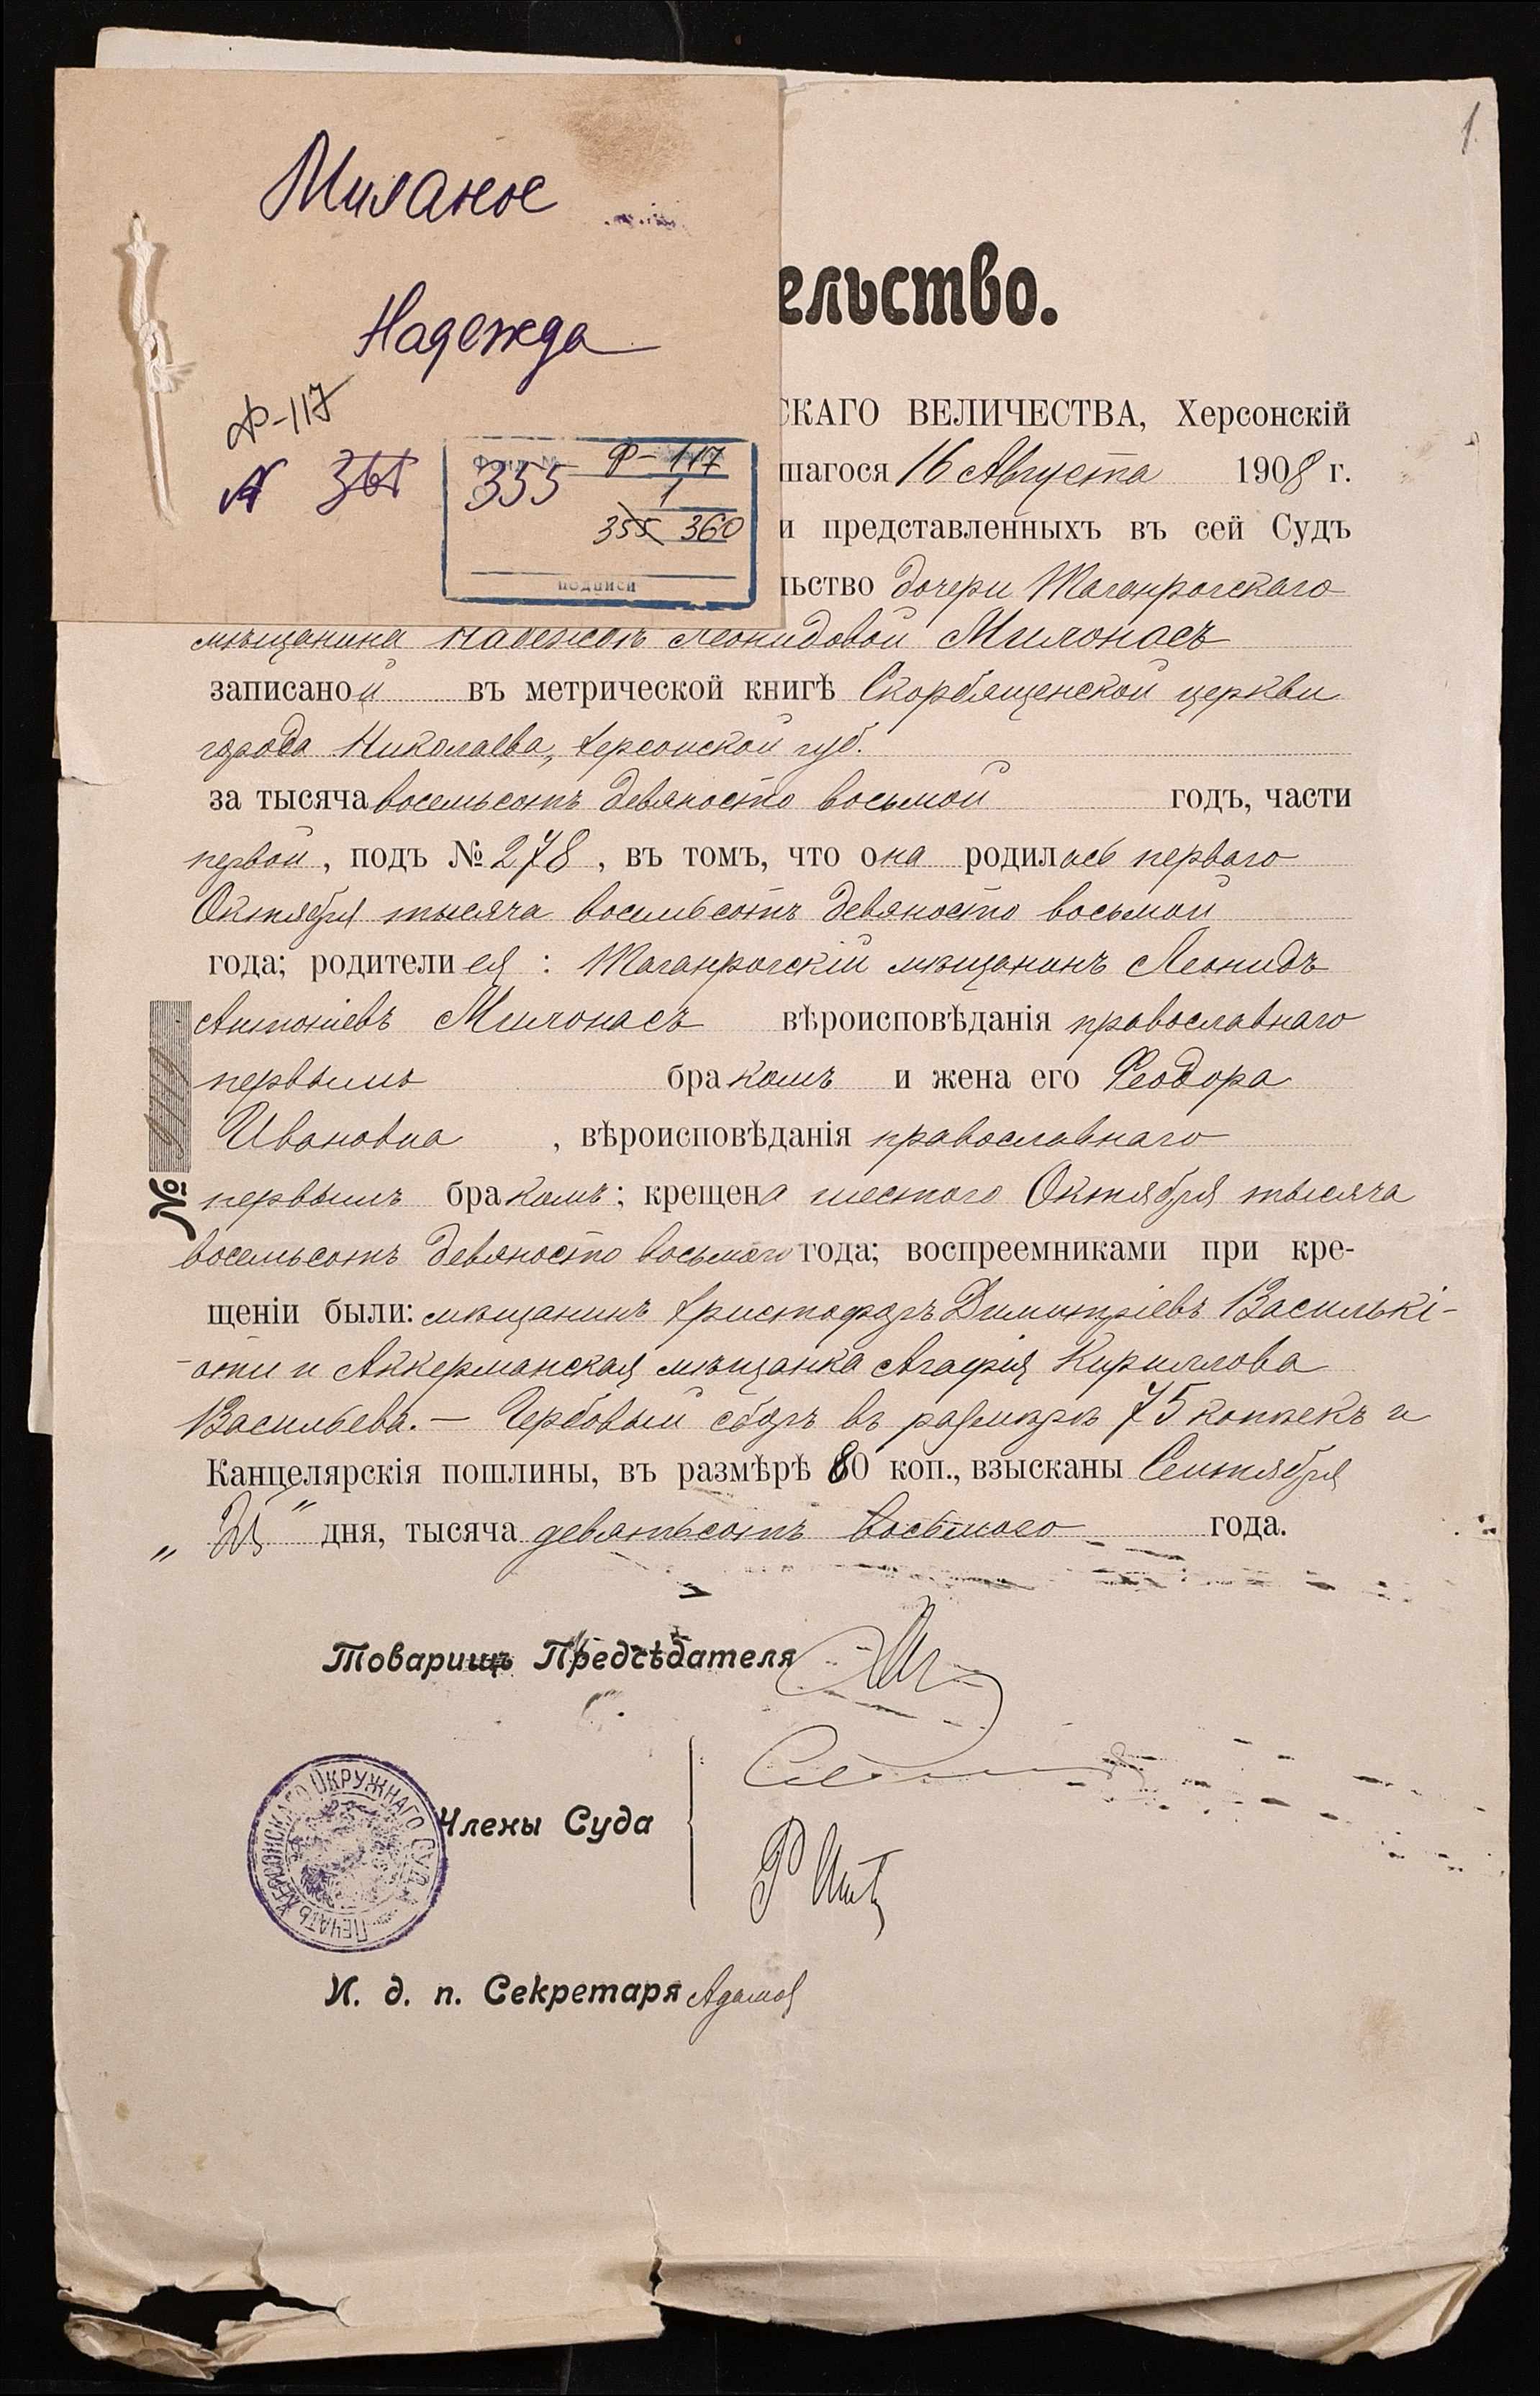 1.
Миланос
Надежда
Ф-117
N 361
355 Ф-117
1
355 360
подписи
ельство.
СКАГО ВЕЛИЧЕСТВА, Херсонскій
шагося 16 Августа 1908 г.
и представленныхъ въ сей Судъ
льство дочери Таганрогскаго
мѣщанина Надеждѣ Леонидовой Милонасъ
записаной въ метрической книгѣ Скорбященской церкви
города Николаева, Херсонской губ.
за тысяча восемьсотъ девяносто восьмой годъ, части
первой, подъ № 278, въ томъ, что она родилась перваго
Октября тысяча восемьсотъ девяносто восьмой
года; родители ея: Таганрогскій мѣщанинъ Леонидъ
Антоніевъ Милонасъ вѣроисповѣданія православнаго
первымъ бракомъ и жена его Феодора
Ивановна, вѣроисповѣданія православнаго
первымъ бракомъ; крещена шестого Октября тысяча
восемьсотъ девяносто восьмого года; воспреемниками при кре-
щеніи были: мѣщанинъ Христофоръ Димитріевъ Василькі-
-оти и Аккерманская мѣщанка Агафія Кириллова
Васильева. — Гербовый сборъ въ размѣрѣ 75 копѣекъ и
Канцелярскія пошлины, въ размѣрѣ 80 коп., взысканы Сентября
дня, тысяча девятьсотъ восьмого года.
№
Товарищъ Предсѣдателя
Члены Суда
ПЕЧАТЬ ХЕРСОНСКАГО ОКРУЖНАГО СУДА
И. д. п. Секретаря Адамов